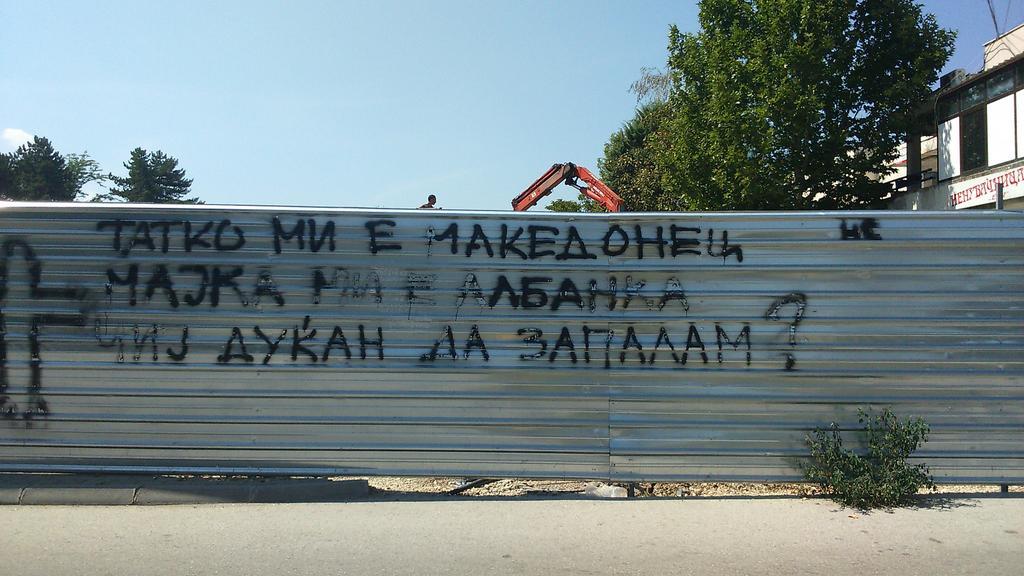 ТАТКО МИ Е МАКЕДОНЕЦ
МАЈКА МИ Е АЛБАНКА
ЧИЈ ДУЌАН ДА ЗАПАЛАМ?
НЕ